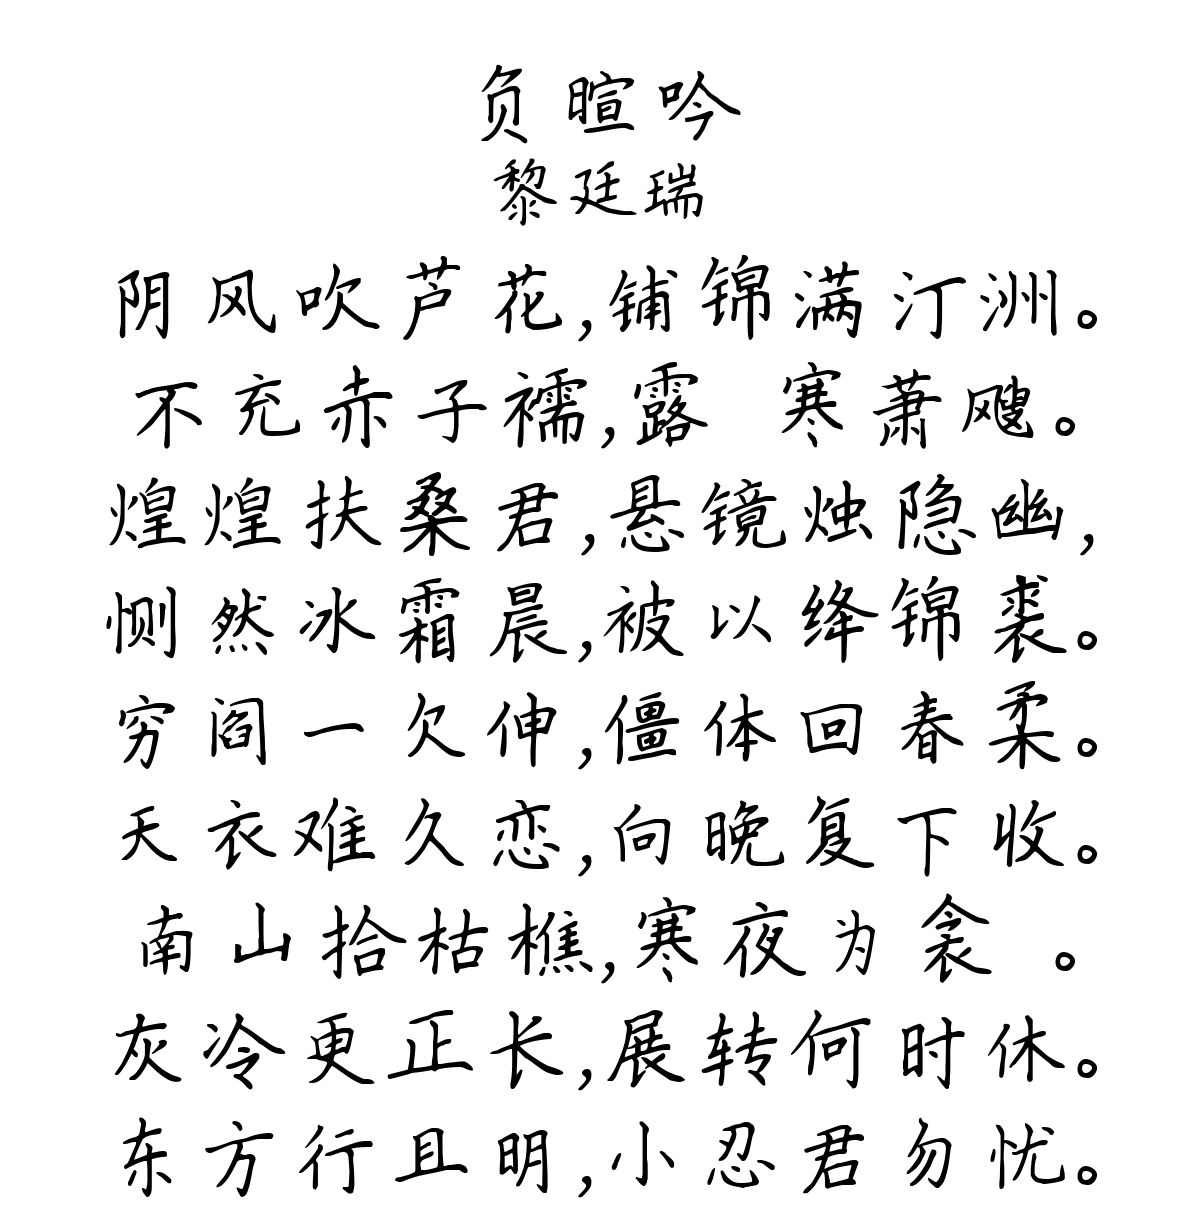 负暄吟
黎廷瑞
阴风吹芦花,铺锦满汀洲。
不充赤子襦,露 寒萧飕。
煌煌扶桑君,悬镜烛隐幽,
恻然冰霜晨,被以绛锦裘。
穷阎一欠伸,僵体回春柔。
天衣难久恋,向晚复下收。
南山拾枯樵,寒夜为衾 。
灰冷更正长,展转何时休。
东方行且明,小忍君勿忧。